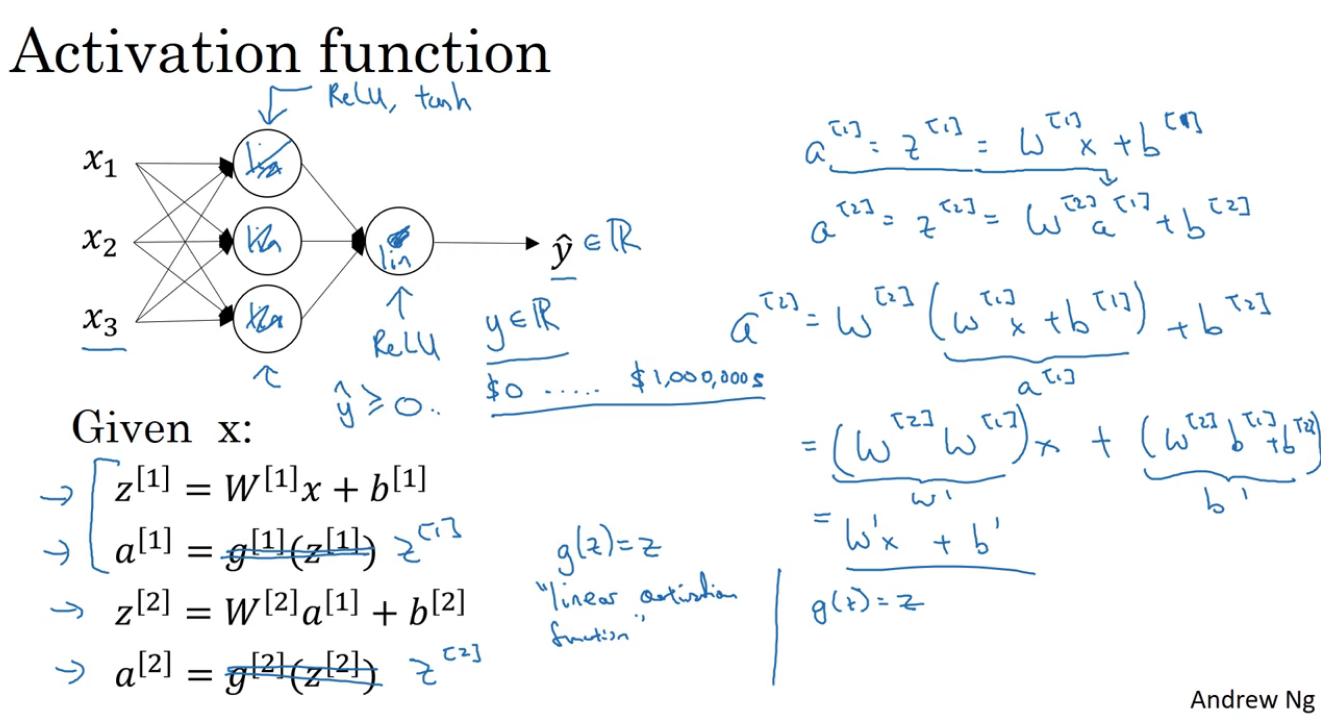 Activation function
ReLU, tanh
x₁
x₂
x₃
lin
ŷ ∈ ℝ
ReLU
y ∈ ℝ
ŷ ≥ 0..
$0 ..... $1,000,000s
Given x:
z^[1] = W^[1]x + b^[1]
a^[1] = g^[1](z^[1]) z^[1]
z^[2] = W^[2]a^[1] + b^[2]
a^[2] = g^[2](z^[2]) z^[2]
g(z) = z
"linear activation
function"
a^[1] = z^[1] = W^[1]x + b^[1]
a^[2] = z^[2] = W^[2]a^[1] + b^[2]
a^[2] = W^[2](W^[1]x + b^[1]) + b^[2]
a^[1]
= (W^[2]W^[1])x + (W^[2]b^[1] + b^[2])
W' b'
= W'x + b'
g(z) = z
Andrew Ng